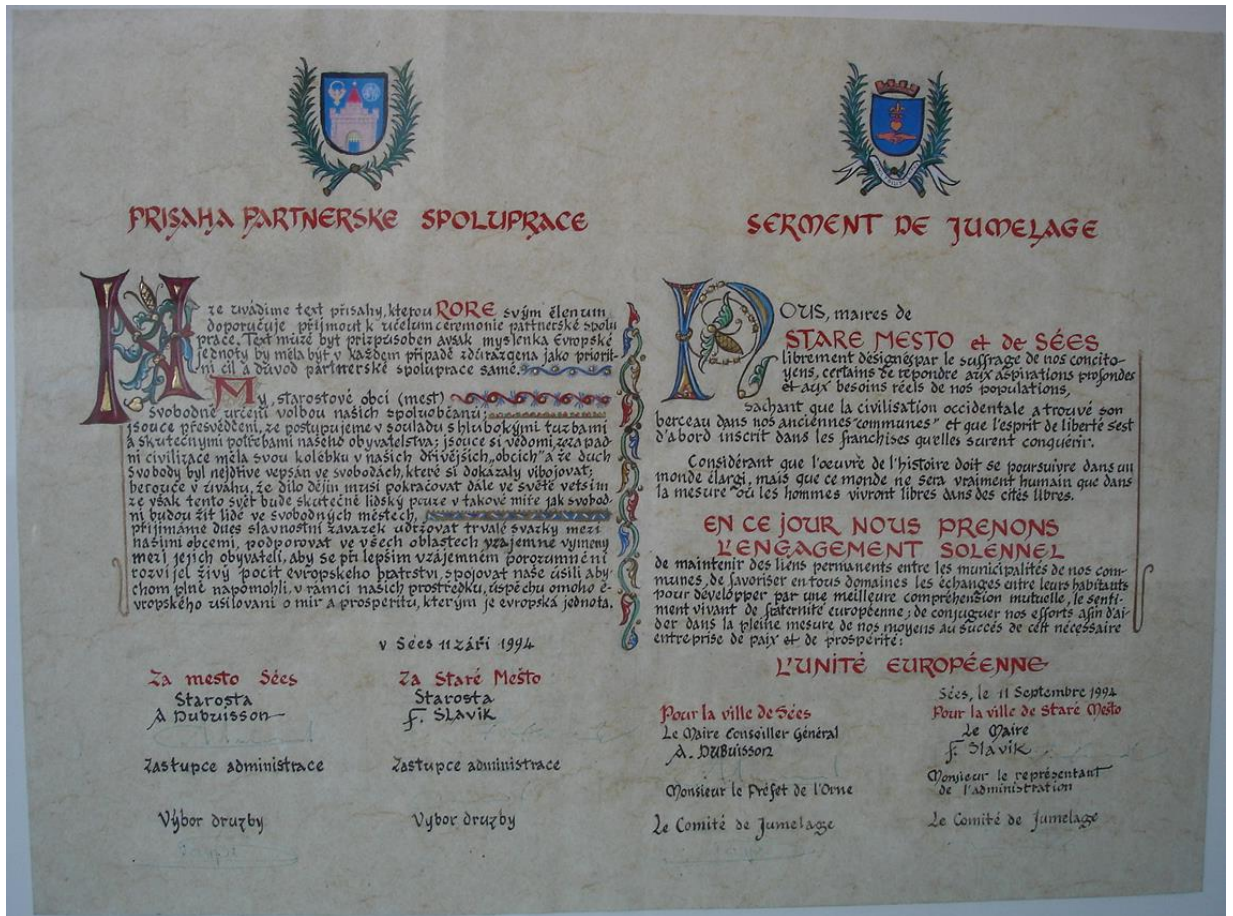 PRISAHA PARTNERSKE SPOLUPRACE
Nže uvádíme text přisahy, kterou RORE svým členům
doporučuje přijmout k účelum ceremonie partnerské spolu
práce. Text muže být prizpusoben avšak myslenka Evropské
jednoty by měla být v každem případě zdurazgena jako priorit
ni cíl a důvod pártnerské spoluprace samé.
My, starostové obcí (mest)
Svobodně určení volbou našich spoluobčanů;
jsouce přesvědčeni, že postupujeme v souladu s hlubokými tužbami
a skutečnými potřebami našeho obyvatelstva; jsouce si vědomi, že zapad
ní civilizace měla svou kolébku v našich dřívějších „obcích" a že duch
Svobody byl nejdříve vepsán ve svobodách, které si dokázaly vibojovat;
berouce v úvahu, že dílo dějin musí pokračovat dále ve světě vetším
že však tento svět bude skutečně lidský pouze v takové míře jak svobod-
ní budou žít lidé ve svobodných městech,
přijímáme dnes slavnostní závazek udržovat trvalé svazky mezi
našimi obcemi, podporovat ve všech oblastech vzájemné výmeny
mezi jejich obyvateli, aby se při lepším vzájemném porozumnění
rozvíjel živý pocit evropskeho bratrství, spojovat naše úsilí aby-
chom plně napomohli, v rámci našich prostředku, úspěchu omoho e-
vropského usilovani o mir a prosperitu, kterým je evropská jednota.
v Sées 11 září 1994
Za mesto Sées
Starosta
A Dubuisson
Zastupce administrace
Výbor druzby
Za Staré Mešto
Starosta
F. Slavik
Zastupce administrace
Vybor druzby
SERMENT DE JUMELAGE
NOUS, maires de
STARE MESTO et de SÉES
librement désignés par le suffrage de nos concito-
yens, certains de repondre aux aspirations profondes
et aux besoins réels de nos populations,
Sachant que la civilisation occidentale a trouvé son
berceau dans nos anciennes "communes" et que l'esprit de liberté s'est
d'abord inscrit dans les franchises qu'elles surent conquérir.
Considérant que l'œuvre de l'histoire doit se poursuivre dans un
monde élargi, mais que ce monde ne sera vraiment humain que dans
la mesure où les hommes vivront libres dans des cités libres.
EN CE JOUR NOUS PRENONS
L'ENGAGEMENT SOLENNEL
de maintenir des liens permanents entre les municipalités de nos com-
munes, de favoriser en tous domaines les échanges entre leurs habitants
pour développer par une meilleure compréhension mutuelle, le senti-
ment vivant de fraternité européenne; de conjuguer nos efforts afin d'ai-
der dans la pleine mesure de nos moyens au succès de cett nécessaire
entreprise de paix et de prospérité:
L'UNITÉ EUROPÉENNE
Sées, le 11 Septembre 1994
Pour la ville de Sées
Le Maire Conseiller Général
A. DUBUISSON
Monsieur le Préfet de l'Orne
Le Comité de Jumelage
Pour la ville de Staré Mešto
Le Maire
F. Slavik
Monsieur le représentant
de l'administration
Le Comité de Jumelage